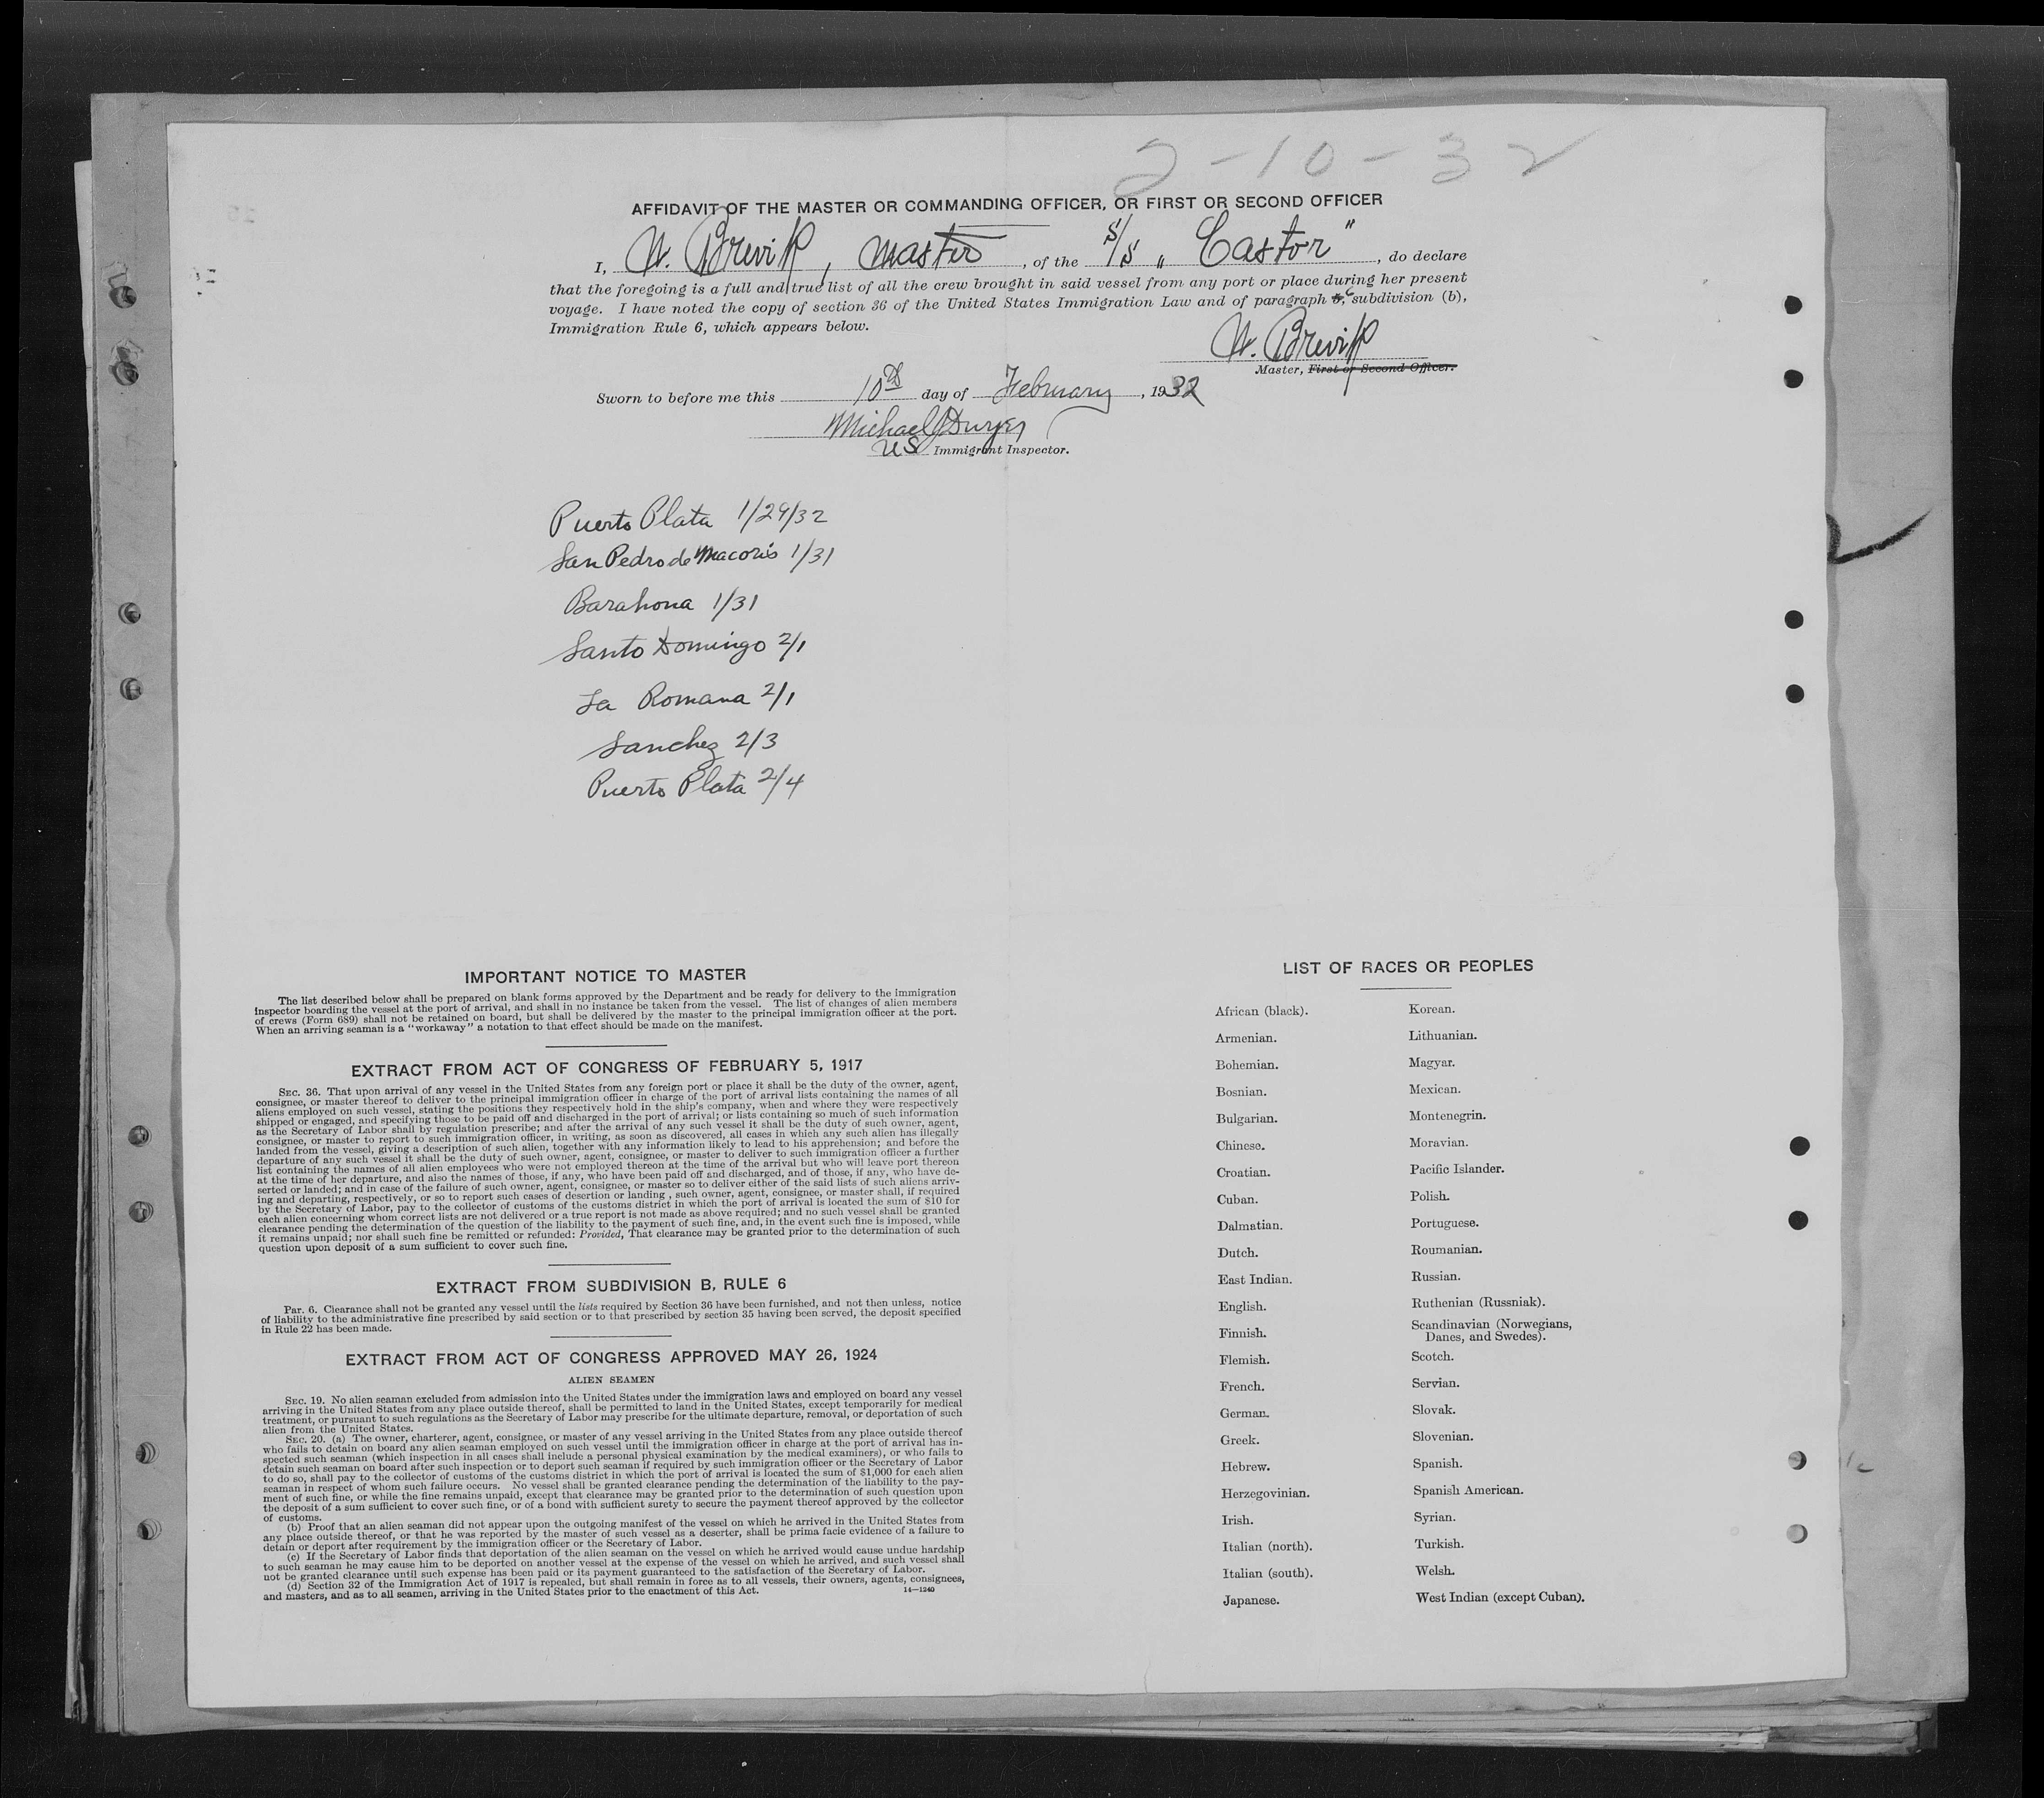 2-10-32
AFFIDAVIT OF THE MASTER OR COMMANDING OFFICER, OR FIRST OR SECOND OFFICER
I, W. Brevik, master, of the S/S "Castor", do declare
that the foregoing is a full and true list of all the crew brought in said vessel from any port or place during her present
voyage. I have noted the copy of section 36 of the United States Immigration Law and of paragraph 6, subdivision (b),
Immigration Rule 6, which appears below.
W. Brevik
Master, First or Second Officer.
Sworn to before me this 10th day of February, 1932
Michael J Dwyer
US Immigrant Inspector.
Puerto Plata 1/29/32
San Pedro de Macoris 1/31
Barahona 1/31
Santo Domingo 2/1
La Romana 2/1
Sanchez 2/3
Puerto Plata 2/4
IMPORTANT NOTICE TO MASTER
The list described below shall be prepared on blank forms approved by the Department and be ready for delivery to the immigration
inspector boarding the vessel at the port of arrival, and shall in no instance be taken from the vessel. The list of changes of alien members
of crews (Form 689) shall not be retained on board, but shall be delivered by the master to the principal immigration officer at the port.
When an arriving seaman is a "workaway" a notation to that effect should be made on the manifest.
EXTRACT FROM ACT OF CONGRESS OF FEBRUARY 5, 1917
SEC. 36. That upon arrival of any vessel in the United States from any foreign port or place it shall be the duty of the owner, agent,
consignee, or master thereof to deliver to the principal immigration officer in charge of the port of arrival lists containing the names of all
aliens employed on such vessel, stating the positions they respectively hold in the ship's company, when and where they were respectively
shipped or engaged, and specifying those to be paid off and discharged in the port of arrival; or lists containing so much of such information
as the Secretary of Labor shall by regulation prescribe; and after the arrival of any such vessel it shall be the duty of such owner, agent,
consignee, or master to report to such immigration officer, in writing, as soon as discovered, all cases in which any such alien has illegally
landed from the vessel, giving a description of such alien, together with any information likely to lead to his apprehension; and before the
departure of any such vessel it shall be the duty of such owner, agent, consignee, or master to deliver to such immigration officer a further
list containing the names of all alien employees who were not employed thereon at the time of the arrival but who will leave port thereon
at the time of her departure, and also the names of those, if any, who have been paid off and discharged, and of those, if any, who have de-
serted or landed; and in case of the failure of such owner, agent, consignee, or master so to deliver either of the said lists of such aliens arriv-
ing and departing, respectively, or so to report such cases of desertion or landing , such owner, agent, consignee, or master shall, if required
by the Secretary of Labor, pay to the collector of customs of the customs district in which the port of arrival is located the sum of $10 for
each alien concerning whom correct lists are not delivered or a true report is not made as above required; and no such vessel shall be granted
clearance pending the determination of the question of the liability to the payment of such fine, and, in the event such fine is imposed, while
it remains unpaid; nor shall such fine be remitted or refunded: Provided, That clearance may be granted prior to the determination of such
question upon deposit of a sum sufficient to cover such fine.
EXTRACT FROM SUBDIVISION B, RULE 6
Par. 6. Clearance shall not be granted any vessel until the lists required by Section 36 have been furnished, and not then unless, notice
of liability to the administrative fine prescribed by said section or to that prescribed by section 35 having been served, the deposit specified
in Rule 22 has been made.
EXTRACT FROM ACT OF CONGRESS APPROVED MAY 26, 1924
ALIEN SEAMEN
SEC. 19. No alien seaman excluded from admission into the United States under the immigration laws and employed on board any vessel
arriving in the United States from any place outside thereof, shall be permitted to land in the United States, except temporarily for medical
treatment, or pursuant to such regulations as the Secretary of Labor may prescribe for the ultimate departure, removal, or deportation of such
alien from the United States.
SEC. 20. (a) The owner, charterer, agent, consignee, or master of any vessel arriving in the United States from any place outside thereof
who fails to detain on board any alien seaman employed on such vessel until the immigration officer in charge at the port of arrival has in-
spected such seaman (which inspection in all cases shall include a personal physical examination by the medical examiners), or who fails to
detain such seaman on board after such inspection or to deport such seaman if required by such immigration officer or the Secretary of Labor
to do so, shall pay to the collector of customs of the customs district in which the port of arrival is located the sum of $1,000 for each alien
seaman in respect of whom such failure occurs. No vessel shall be granted clearance pending the determination of the liability to the pay-
ment of such fine, or while the fine remains unpaid, except that clearance may be granted prior to the determination of such question upon
the deposit of a sum sufficient to cover such fine, or of a bond with sufficient surety to secure the payment thereof approved by the collector
of customs.
(b) Proof that an alien seaman did not appear upon the outgoing manifest of the vessel on which he arrived in the United States from
any place outside thereof, or that he was reported by the master of such vessel as a deserter, shall be prima facie evidence of a failure to
detain or deport after requirement by the immigration officer or the Secretary of Labor.
(c) If the Secretary of Labor finds that deportation of the alien seaman on the vessel on which he arrived would cause undue hardship
to such seaman he may cause him to be deported on another vessel at the expense of the vessel on which he arrived, and such vessel shall
not be granted clearance until such expense has been paid or its payment guaranteed to the satisfaction of the Secretary of Labor.
(d) Section 32 of the Immigration Act of 1917 is repealed, but shall remain in force as to all vessels, their owners, agents, consignees,
and masters, and as to all seamen, arriving in the United States prior to the enactment of this Act.
14—1240
LIST OF RACES OR PEOPLES
African (black).
Armenian.
Bohemian.
Bosnian.
Bulgarian.
Chinese.
Croatian.
Cuban.
Dalmatian.
Dutch.
East Indian.
English.
Finnish.
Flemish.
French.
German.
Greek.
Hebrew.
Herzegovinian.
Irish.
Italian (north).
Italian (south).
Japanese.
Korean.
Lithuanian.
Magyar.
Mexican.
Montenegrin.
Moravian.
Pacific Islander.
Polish.
Portuguese.
Roumanian.
Russian.
Ruthenian (Russniak).
Scandinavian (Norwegians,
Danes, and Swedes).
Scotch.
Servian.
Slovak.
Slovenian.
Spanish.
Spanish American.
Syrian.
Turkish.
Welsh.
West Indian (except Cuban).